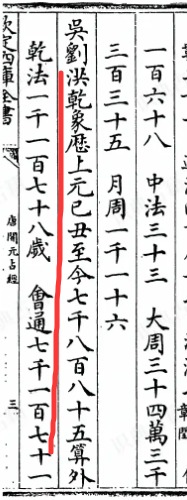 一百六十八　中法三十三　大周三十四萬三千
三百三十五　月周一千一十六
吳劉洪乾象歴上元己丑至今七千八百八十五算外
乾法一千一百七十八歲　㑹通七千一百七十一
欽定四庫全書
唐開元占經
三